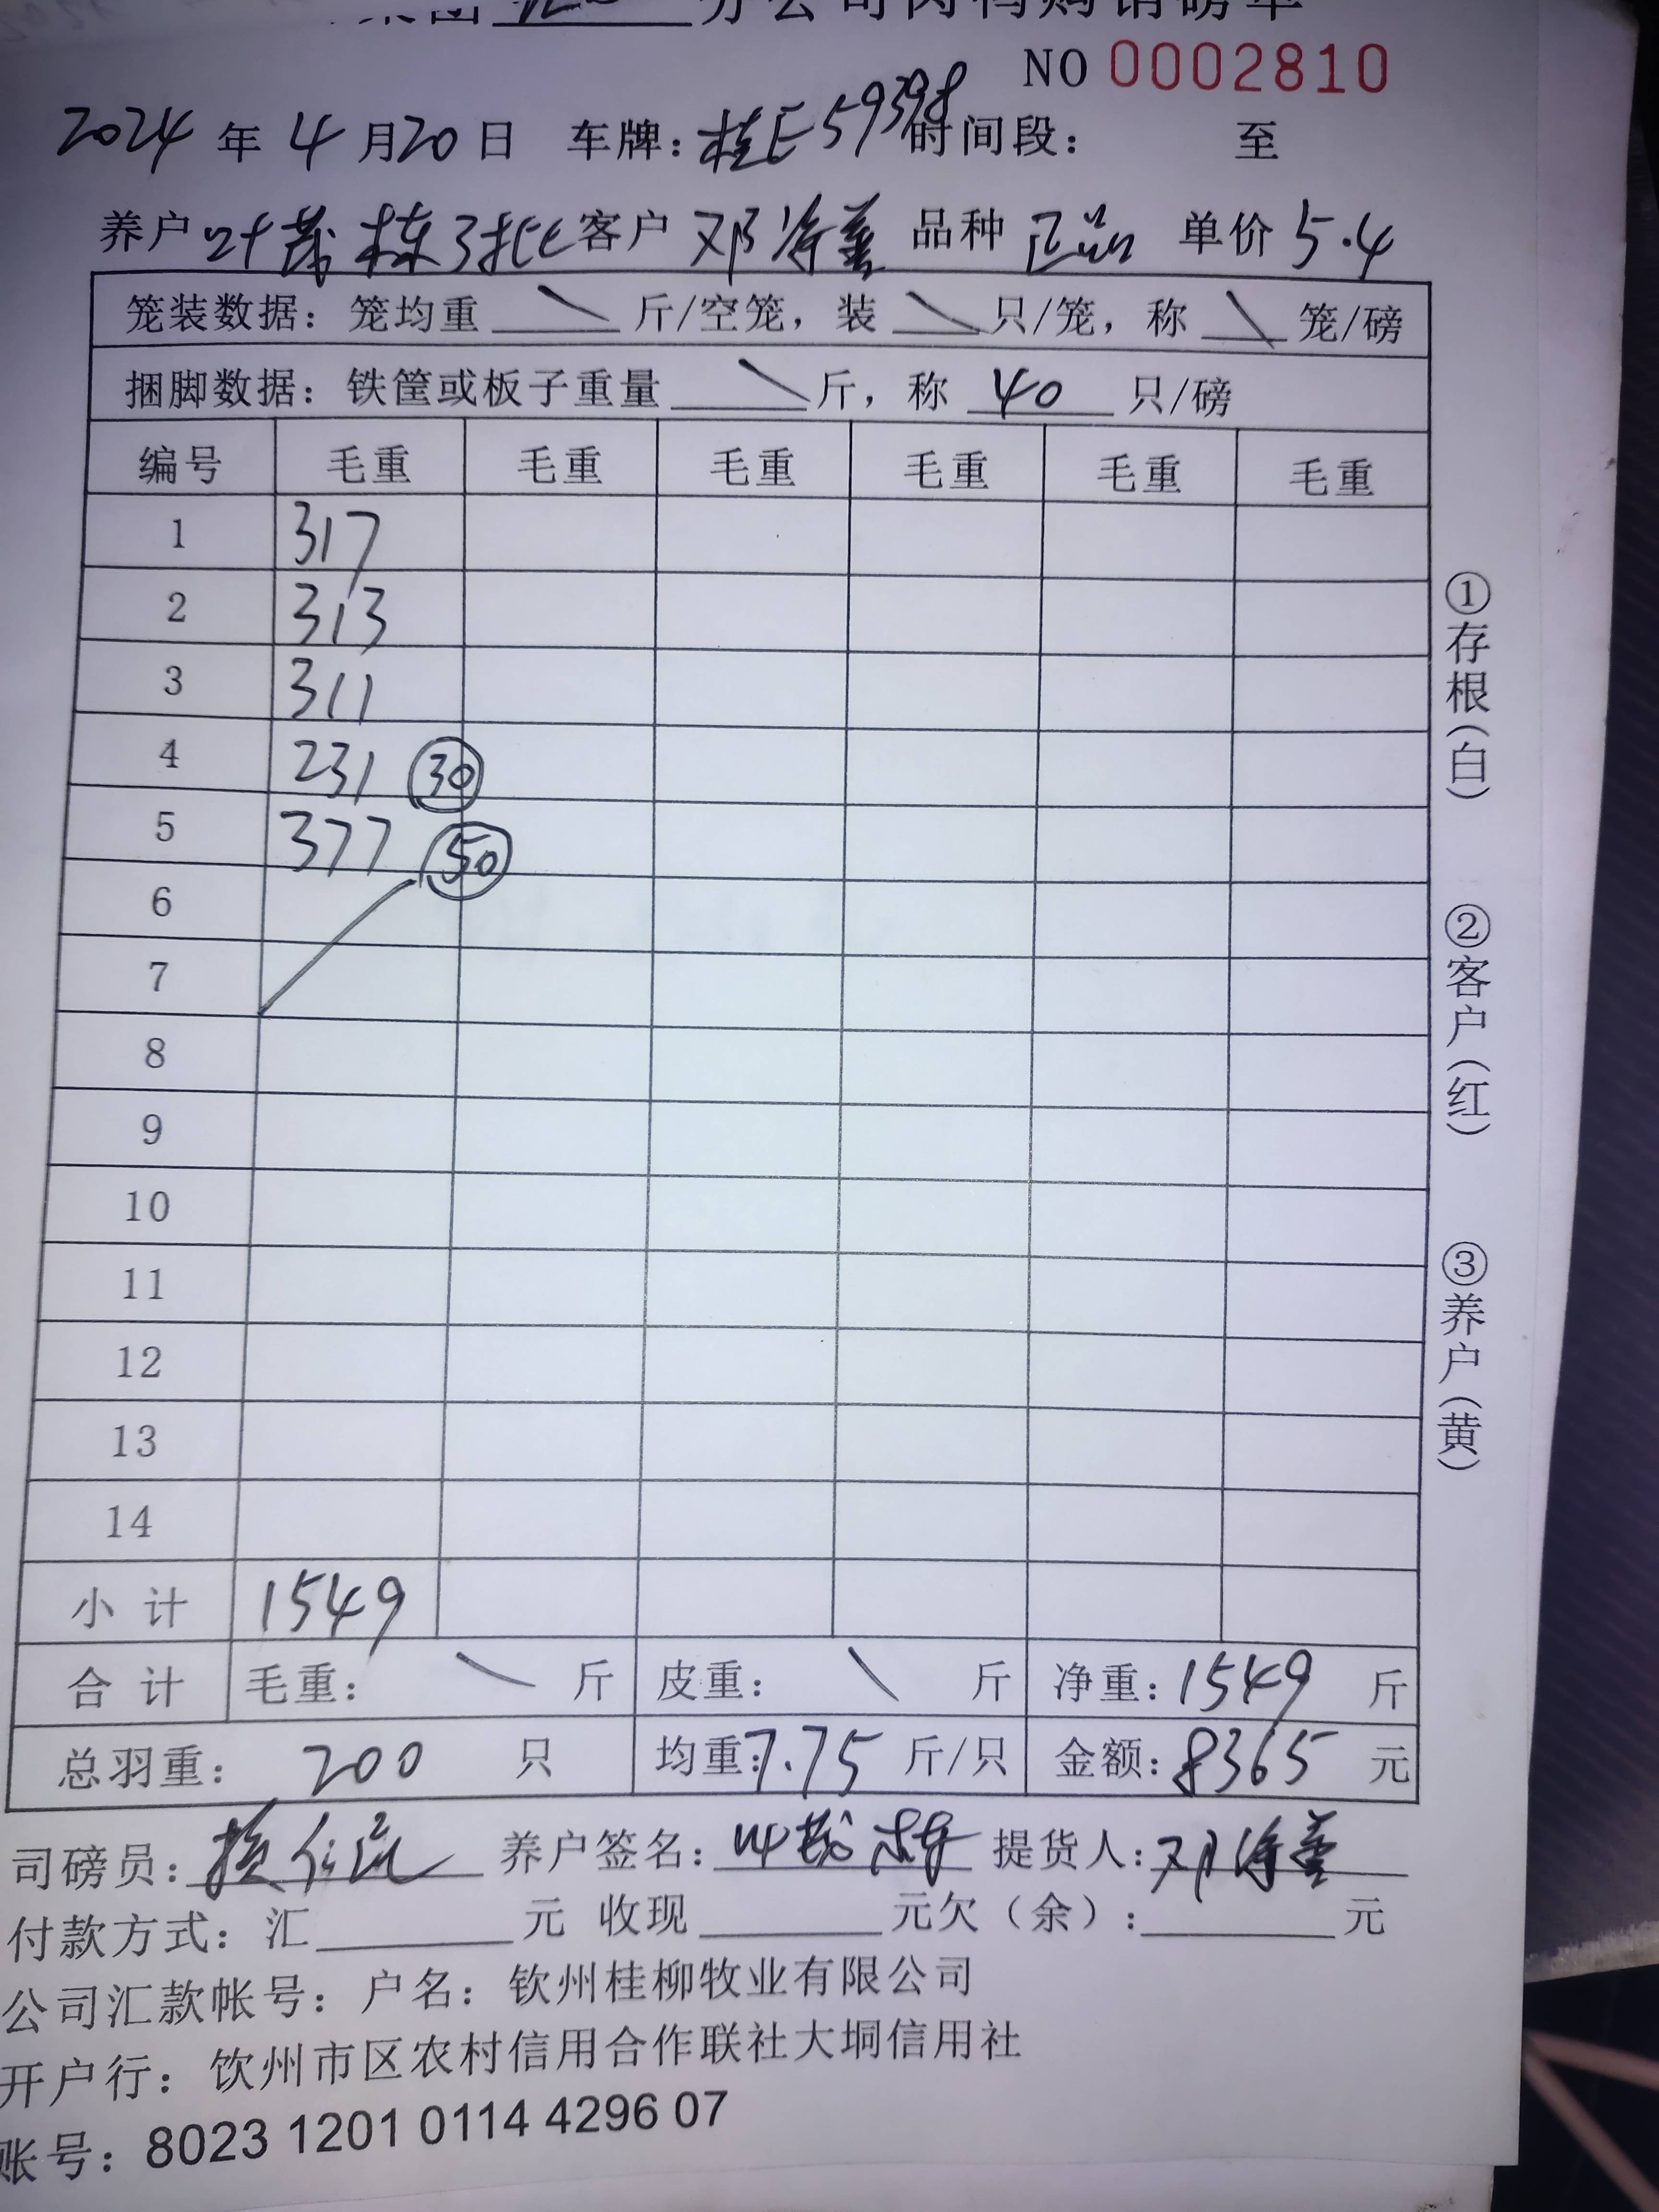 分公司肉鸭购销磅单
NO 0002810
2024 年 4 月 20 日 车牌: 桂E59398 时间段: 至
养户 叶茂栋3批 客户 邓 品种 正品 单价 5.4
笼装数据: 笼均重 \ 斤/空笼, 装 \ 只/笼, 称 \ 笼/磅
捆脚数据: 铁筐或板子重量 \ 斤, 称 40 只/磅
编号 毛重 毛重 毛重 毛重 毛重 毛重
1 317
2 313
3 311
4 231 30
5 377 50
6
7
8
9
10
11
12
13
14
小计 1549
合计 毛重: \ 斤 皮重: \ 斤 净重: 1549 斤
总羽重: 200 只 均重: 7.75 斤/只 金额: 8365 元
司磅员: 养户签名: 叶茂栋 提货人: 邓
付款方式: 汇 元 收现 元欠(余): 元
公司汇款帐号: 户名: 钦州桂柳牧业有限公司
开户行: 饮州市区农村信用合作联社大垌信用社
账号: 8023 1201 0114 4296 07
①存根(白)
②客户(红)
③养户(黄)